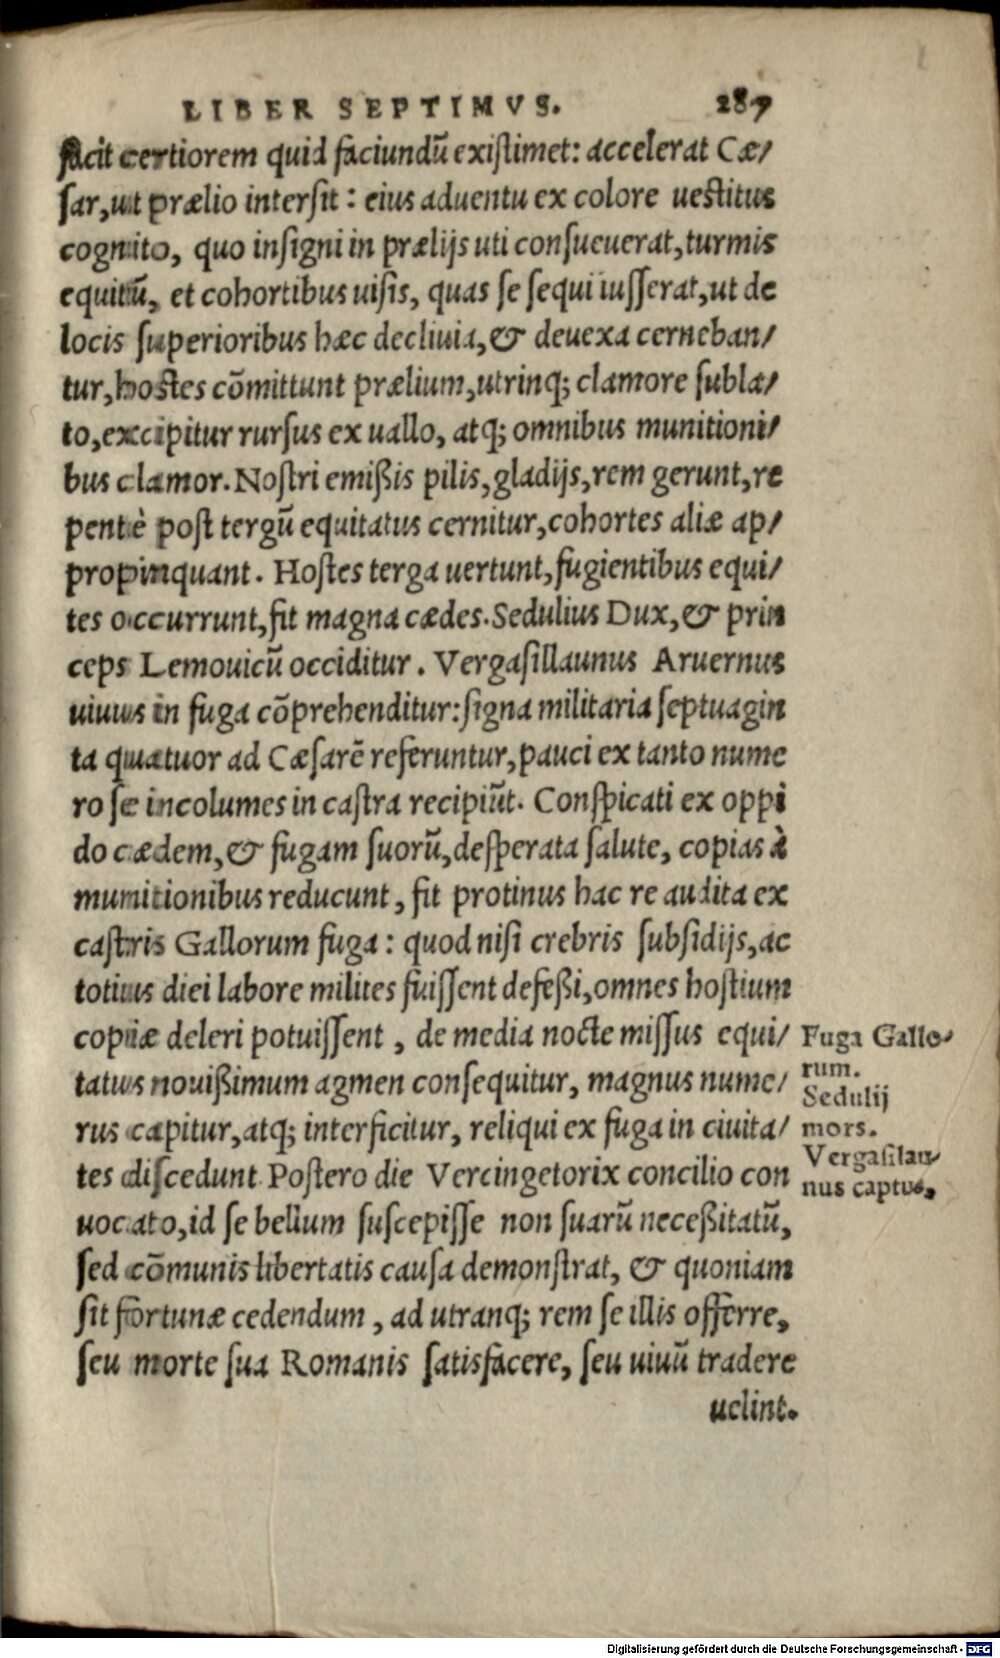 LIBER SEPTIMVS. 287
facit certiorem quid faciundũ existimet: accelerat Cæ/
sar, ut prælio intersit: eius aduentu ex colore uestitus
cognito, quo insigni in prælijs uti consueuerat, turmis
equitũ, et cohortibus uisis, quas se sequi iusserat, ut de
locis superioribus hæc decliuia, & deuexa cerneban/
tur, hostes cõmittunt prælium, utrinq; clamore subla/
to, excipitur rursus ex uallo, atq; omnibus munitioni/
bus clamor. Nostri emißis pilis, gladijs, rem gerunt, re
pentè post tergũ equitatus cernitur, cohortes aliæ ap/
propinquant. Hostes terga uertunt, fugientibus equi/
tes occurrunt, fit magna cædes. Sedulius Dux, & prin
ceps Lemouicũ occiditur. Vergasillaunus Aruernus
uiuus in fuga cõprehenditur: signa militaria septuagin
ta quatuor ad Cæsarẽ referuntur, pauci ex tanto nume
ro se incolumes in castra recipiũt. Conspicati ex oppi
do cædem, & fugam suorũ, desperata salute, copias à
munitionibus reducunt, fit protinus hac re audita ex
castris Gallorum fuga: quod nisi crebris subsidijs, ac
totius diei labore milites fuissent defeßi, omnes hostium
copiæ deleri potuissent, de media nocte missus equi/
tatus nouißimum agmen consequitur, magnus nume/
rus capitur, atq; interficitur, reliqui ex fuga in ciuita/
tes discedunt. Postero die Vercingetorix concilio con
uocato, id se bellum suscepisse non suarũ neceßitatũ,
sed cõmunis libertatis causa demonstrat, & quoniam
sit fortunæ cedendum, ad utranq; rem se illis offerre,
seu morte sua Romanis satisfacere, seu uiuũ tradere
uelint.
Fuga Gallo-
rum.
Sedulij
mors.
Vergasilau-
nus captus.
Digitalisierung gefördert durch die Deutsche Forschungsgemeinschaft - DFG